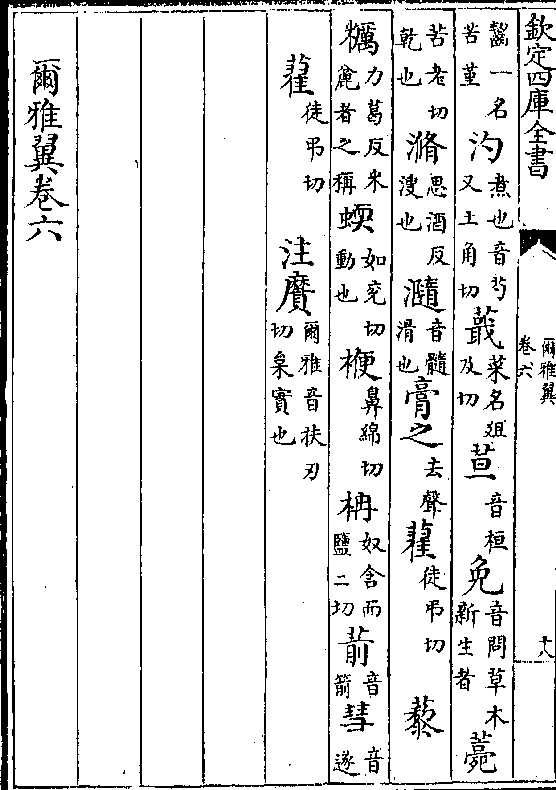 欽定四庫全書
爾雅翼
卷六
十八
齧一名苦堇汋煮也音芍又土角切蕺菜名俎及切荁音桓免音問草木新生者薧
苦老切乾也滫思酒反溲也瀡音髓滑也膏之去聲藋徒弔切藜
糲力葛反米麄者之稱蝡如兖切動也楩鼻綿切枏奴含而鹽二切葥音箭彗音遂
藋徒弔切注黂爾雅音扶刃切枲實也
爾雅翼卷六